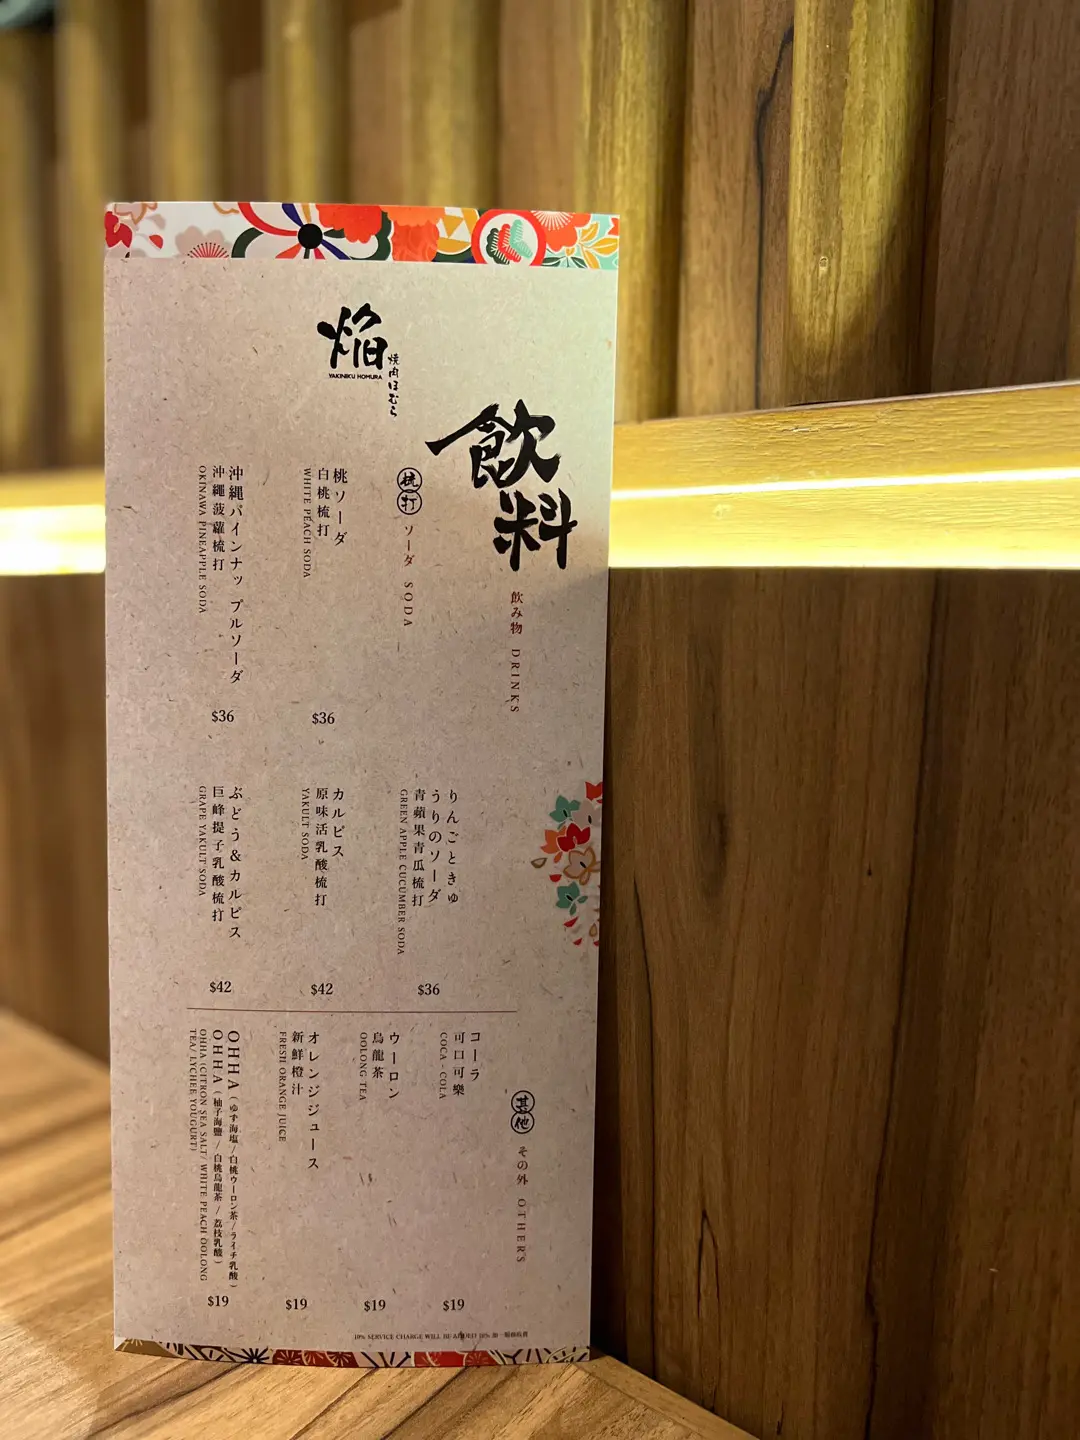 焔
YAKINIKU HOMURA
焼肉ほむら
飲料
飲み物 DRINKS
梳打 ソーダ SODA
桃ソーダ
白桃梳打
WHITE PEACH SODA
$36
沖縄パインナップルソーダ
沖繩菠蘿梳打
OKINAWA PINEAPPLE SODA
$36
りんごときゅ
うりのソーダ
青蘋果青瓜梳打
GREEN APPLE CUCUMBER SODA
$36
カルピス
原味活乳酸梳打
YAKULT SODA
$42
ぶどう&カルピス
巨峰提子乳酸梳打
GRAPE YAKULT SODA
$42
其他 その外 OTHERS
コーラ
可口可樂
COCA - COLA
$19
ウーロン
烏龍茶
OOLONG TEA
$19
オレンジジュース
新鮮橙汁
FRESH ORANGE JUICE
$19
OHHA(ゆず海塩/白桃ウーロン茶/ライチ乳酸)
OHHA(柚子海鹽/白桃烏龍茶/荔枝乳酸)
OHHA (CITRON SEA SALT/ WHITE PEACH OOLONG
TEA/ LYCHEE YOUGURT)
$19
10% SERVICE CHARGE WILL BE ADDED 10% 加一服務收費